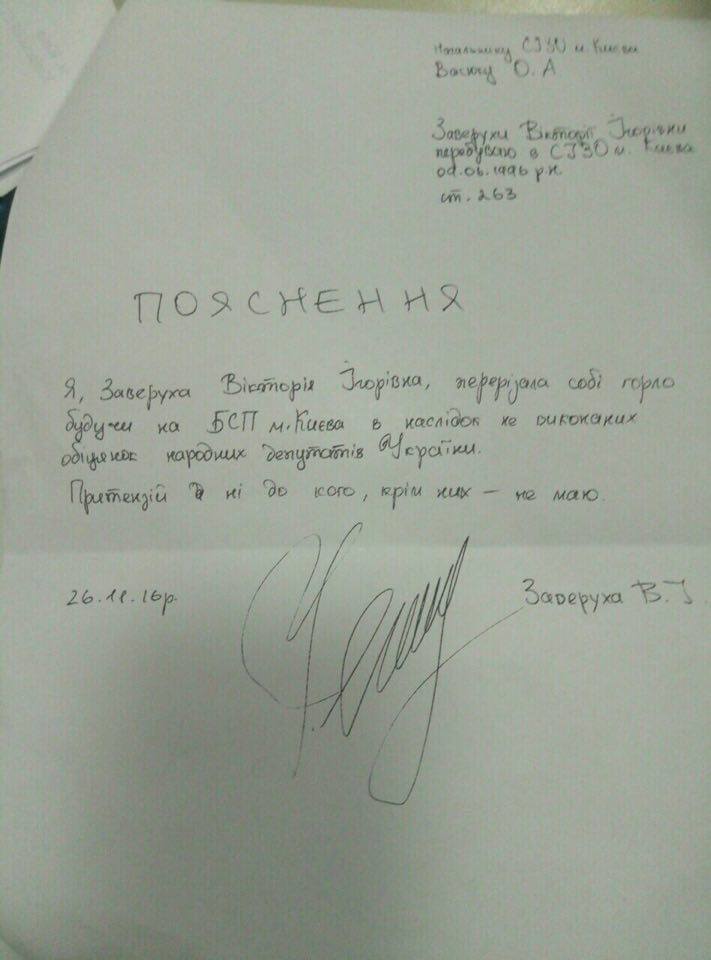 Начальнику СІЗО м. Києва
Васюку О. А
Заверухи Вікторії Ігорівни
перебуваю в СІЗО м. Києва
09.06.1996 р.н.
ст. 263
ПОЯСНЕННЯ
Я, Заверуха Вікторія Ігорівна, перерізала собі горло
будучи на БСП м. Києва в наслідок не виконаних
обіцянок народних депутатів України.
Притензій ні до кого, крім них – не маю.
26.11.16р.
Заверуха В. І.